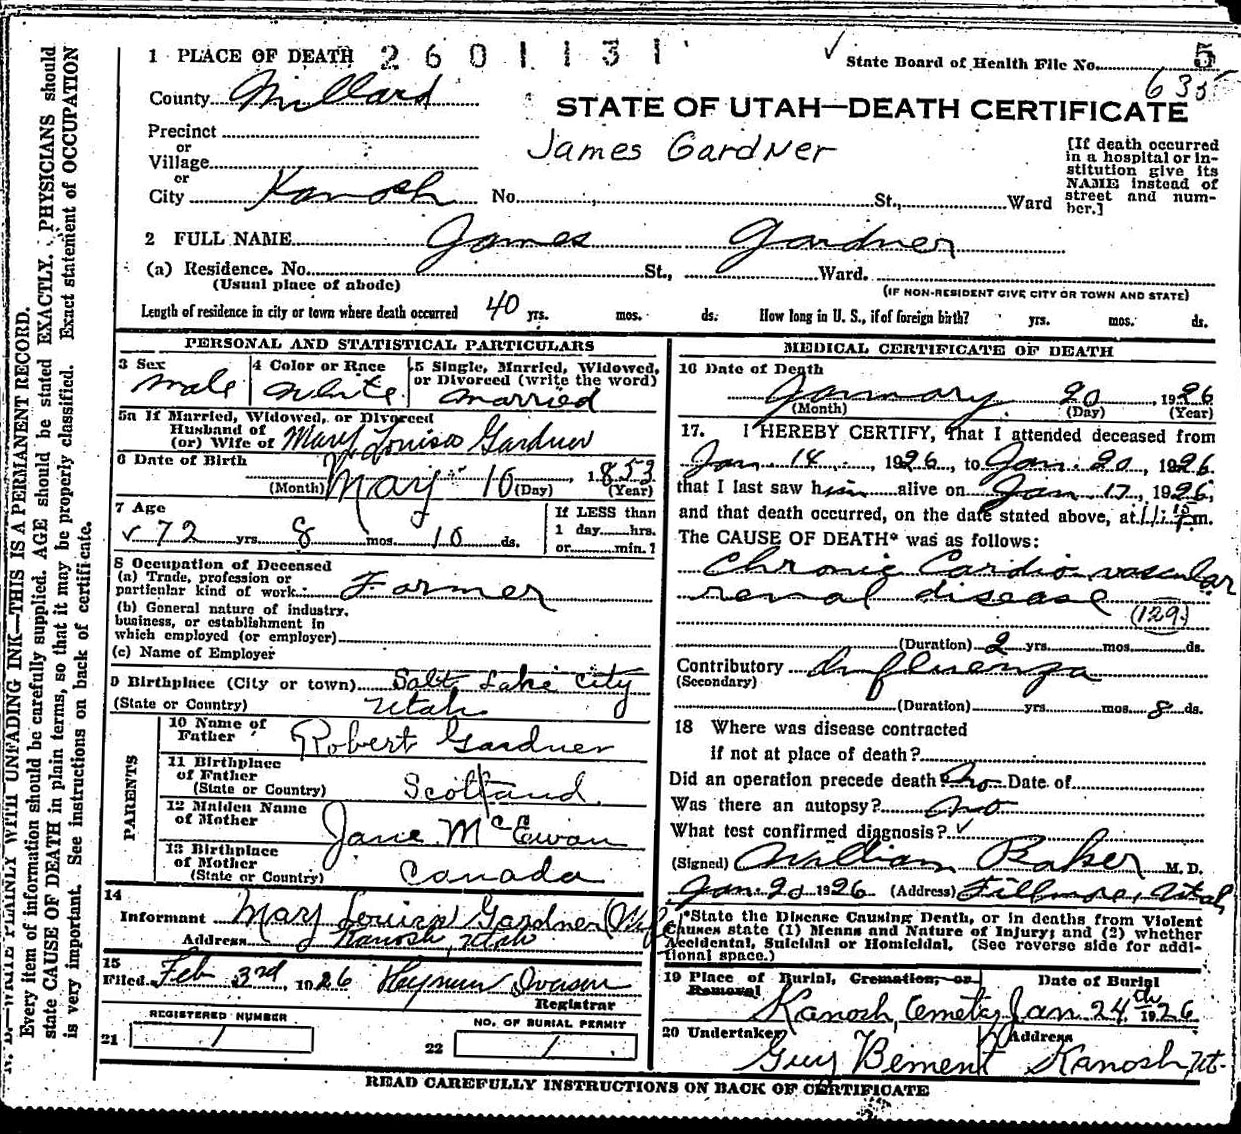 1 PLACE OF DEATH 2601131 ✓ State Board of Health File No. 5
County Millard 635
STATE OF UTAH—DEATH CERTIFICATE
Precinct
or
Village
or
City Kanosh No. St., Ward
James Gardner
[If death occurred
in a hospital or in-
stitution give its
NAME instead of
street and num-
ber.]
2 FULL NAME James Gardner
(a) Residence. No. St., Ward.
(Usual place of abode) (IF NON-RESIDENT GIVE CITY OR TOWN AND STATE)
Length of residence in city or town where death occurred 40 yrs. mos. ds. How long in U. S., if of foreign birth? yrs. mos. ds.
PERSONAL AND STATISTICAL PARTICULARS
3 Sex male
4 Color or Race white
5 Single, Married, Widowed,
or Divorced (write the word)
married
5a If Married, Widowed, or Divorced
Husband of
(or) Wife of Mary Louisa Gardner
6 Date of Birth
May 10, 1853
(Month) (Day) (Year)
7 Age
✓ 72 yrs. 8 mos. 10 ds.
If LESS than
1 day hrs.
or min.?
8 Occupation of Deceased
(a) Trade, profession or
particular kind of work Farmer
(b) General nature of industry.
business, or establishment in
which employed (or employer)
(c) Name of Employer
9 Birthplace (City or town) Salt Lake City
(State or Country) Utah
PARENTS
10 Name of
Father Robert Gardner
11 Birthplace
of Father
(State or Country) Scotland
12 Maiden Name
of Mother Jane McEwan
13 Birthplace
of Mother
(State or Country) Canada
14
Informant Mary Louisa Gardner
Address Kanosh, Utah
15
Filed Feb 3rd, 1926
Registrar
REGISTERED NUMBER
21 1
NO. OF BURIAL PERMIT
22 1
MEDICAL CERTIFICATE OF DEATH
16 Date of Death
January 20, 1926
(Month) (Day) (Year)
17. I HEREBY CERTIFY, That I attended deceased from
Jan 14, 1926, to Jan. 20, 1926.
that I last saw him alive on Jan 17, 1926,
and that death occurred, on the date stated above, at 11:15 m.
The CAUSE OF DEATH* was as follows:
Chronic Cardio vascular
renal disease
(129)
(Duration) 2 yrs. mos. ds.
Contributory Influenza
(Secondary)
(Duration) yrs. mos. 8 ds.
18 Where was disease contracted
if not at place of death?
Did an operation precede death? No Date of
Was there an autopsy? no
What test confirmed diagnosis? ✓
(Signed) William Baker M. D.
Jan 20 1926 (Address) Fillmore, Utah
*State the Disease Causing Death, or in deaths from Violent
Causes state (1) Means and Nature of Injury; and (2) whether
Accidental, Suicidal or Homicidal. (See reverse side for addi-
tional space.)
19 Place of Burial, Cremation, or Removal Date of Burial
Kanosh, Jan 24th 1926
20 Undertaker Address
Guy Bement Kanosh, Ut.
READ CAREFULLY INSTRUCTIONS ON BACK OF CERTIFICATE
N. B.—WRITE PLAINLY WITH UNFADING INK—THIS IS A PERMANENT RECORD.
Every item of information should be carefully supplied. AGE should be stated EXACTLY. PHYSICIANS should
state CAUSE OF DEATH in plain terms, so that it may be properly classified. Exact statement of OCCUPATION
is very important. See instructions on back of certificate.